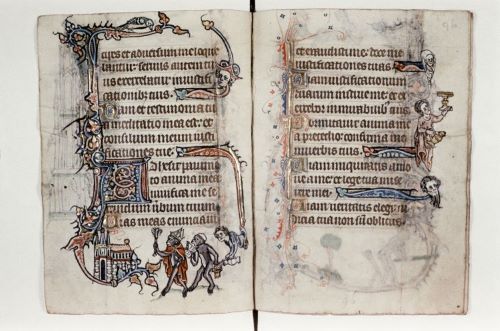 cipes et adversum me loque
bantur: servus autem tu
us exercebatur in iustifi
cationibus tuis
Nam et testimonia tua
meditatio mea est: et con
silium meum iustifi
cationes tue
Adhesit pavimen
to anima mea
vivifica me se
cundum verbum tuum
Vias meas enunciavi
et exaudisti me: doce me
iustificationes tuas
Viam iustificationum
tuarum instrue me: et ex
ercebor in mirabilibus tuis
Dormitavit anima mea
pre tedio: confirma me in ver
bis tuis
Viam iniquitatis
amove a me: et lege tua mise
rere mei
Viam veritatis elegi: iu
dicia tua non sum oblitus